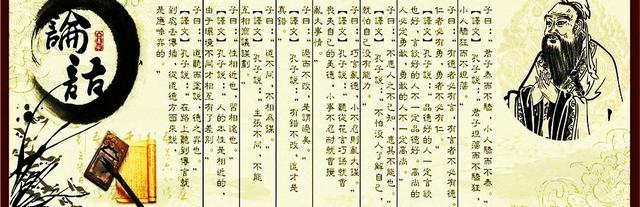 論語
子曰：“君子泰而不驕，小人驕而不泰。”
【譯文】孔子說：“君子坦蕩而不驕狂
小人驕狂而不坦蕩。”
子曰：“有德者必有言，有言者不必有德。
仁者必有勇，勇者不必有仁。”
【譯文】孔子說：“品德好的人一定言談
也好，言談好的人不一定品德好。高尚的
人必定勇敢，勇敢的人不一定高尚
子曰：“不患人之不己知，患其不能也。”
【譯文】孔子說：“不怕没人了解自己，
就怕自己没有能力。”
子曰：“巧言亂德，小不忍則亂大謀。”
【譯文】孔子說：“聽從花言巧語就會
喪失自己的美德，小事不忍耐就會攪
亂大事情。”
子曰：“過而不改，是謂過矣。”
【譯文】孔子說：“有錯不改，這才是
真錯。”
子曰：“道不同，不相為謀。”
【譯文】孔子說：“主張不同，不能
互相商議謀劃。”
子曰：“性相近也，習相遠也。”
【譯文】孔子說：“人的本性是相近的，
由于環境不同才相互有了差別。”
子曰：“道聽而塗說，德之弃也。”
【譯文】孔子說：“在路上聽到傳言就
到處去傳播，從道德方面來說，
是應唾弃的。”